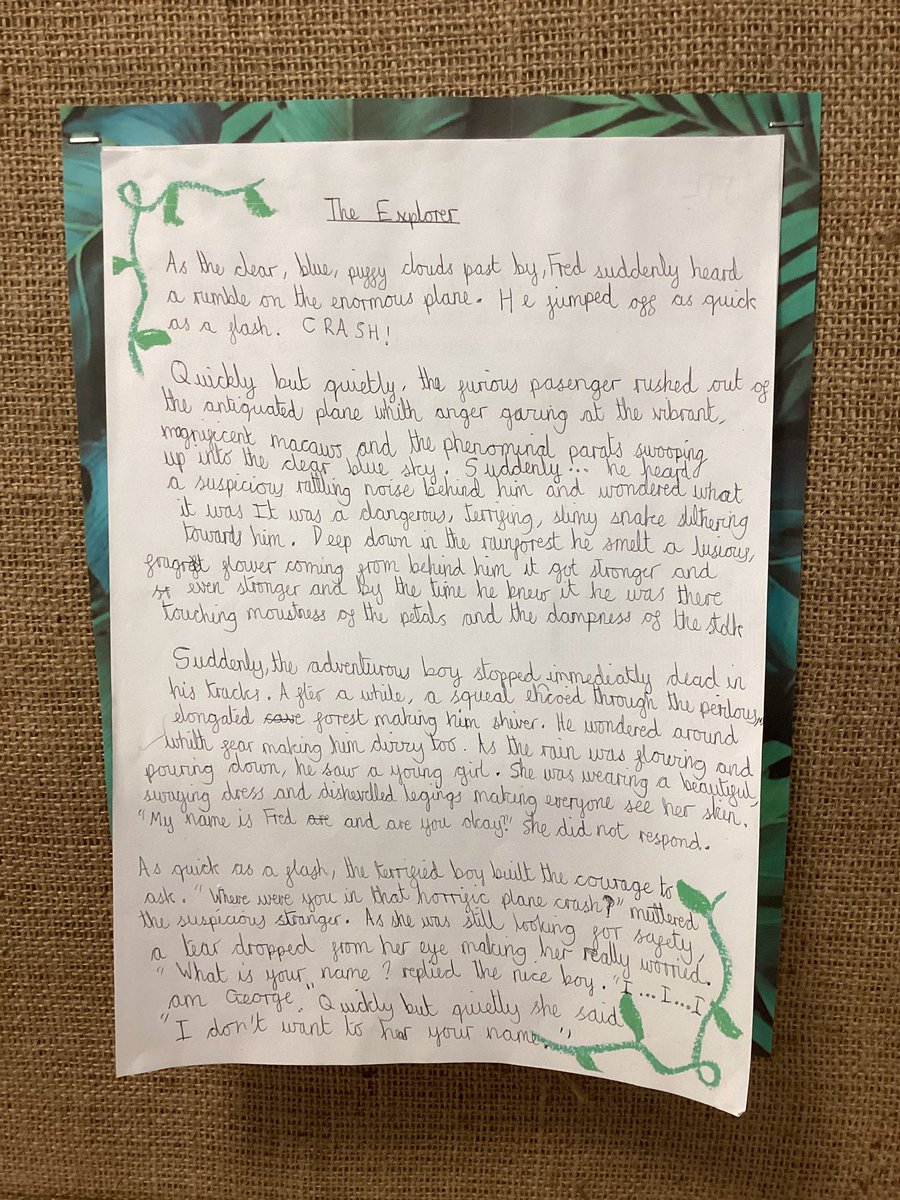 The Explorer
As the clear, blue, puffy clouds past by, Fred suddenly heard
a rumble on the enormous plane. He jumped off as quick
as a flash. CRASH!
Quickly but quietly, the furious pasenger rushed out of
the antiquated plane whith anger garing at the vibrant,
magnificent macaws and the phenominal parats swooping
up into the clear blue sky. Suddenly... he heard
a suspicious rattling noise behind him and wondered what
it was It was a dangerous, terrifying, slimy snake slithering
towards him. Deep down in the rainforest he smelt a lusious,
flower coming from behind him it got stronger and
even stronger and by the time he knew it he was there
touching moustness of the petals and the dampness of the
Suddenly, the adventurous boy stopped immediatly dead in
his tracks. After a while, a squeal echoed through the perilous,
elongated cave forest making him shiver. He wondered around
whith fear making him dizzy too. As the rain was flowing and
pouring down, he saw a young girl. She was wearing a beautiful,
swaying dress and dishevelled legings making everyone see her skin.
"My name is Fred are and are you okay?" She did not respond.
As quick as a flash, the terrified boy built the courage to
ask. "Where were you in that horrific plane crash?" muttered
the suspicious stranger. As she was still looking for safety,
a tear dropped from her eye making her really worried.
"What is your name? replied the nice boy. "I...I...I
am George." Quickly but quietly she said
"I don't want to your name."